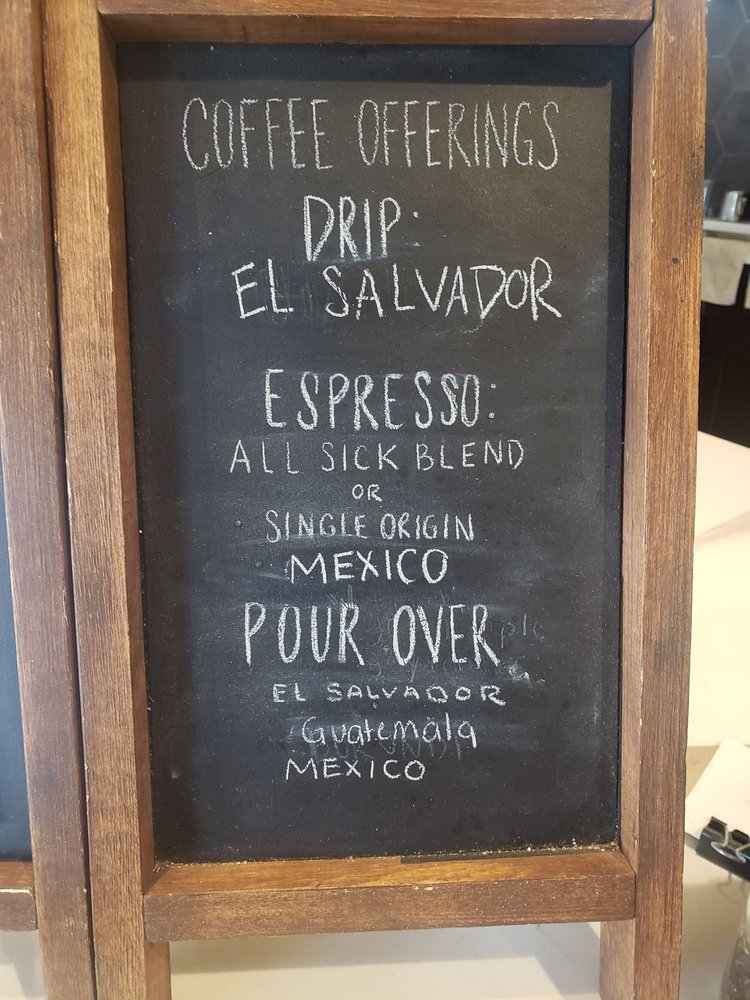 COFFEE OFFERINGS
DRIP:
EL SALVADOR
ESPRESSO:
ALL SICK BLEND
OR
SINGLE ORIGIN
MEXICO
POUR OVER
EL SALVADOR
Guatemala
MEXICO